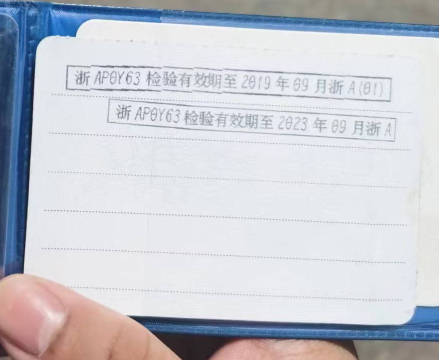 浙AP0Y63检验有效期至2019年09月浙A(01)
浙AP0Y63检验有效期至2023年09月浙A